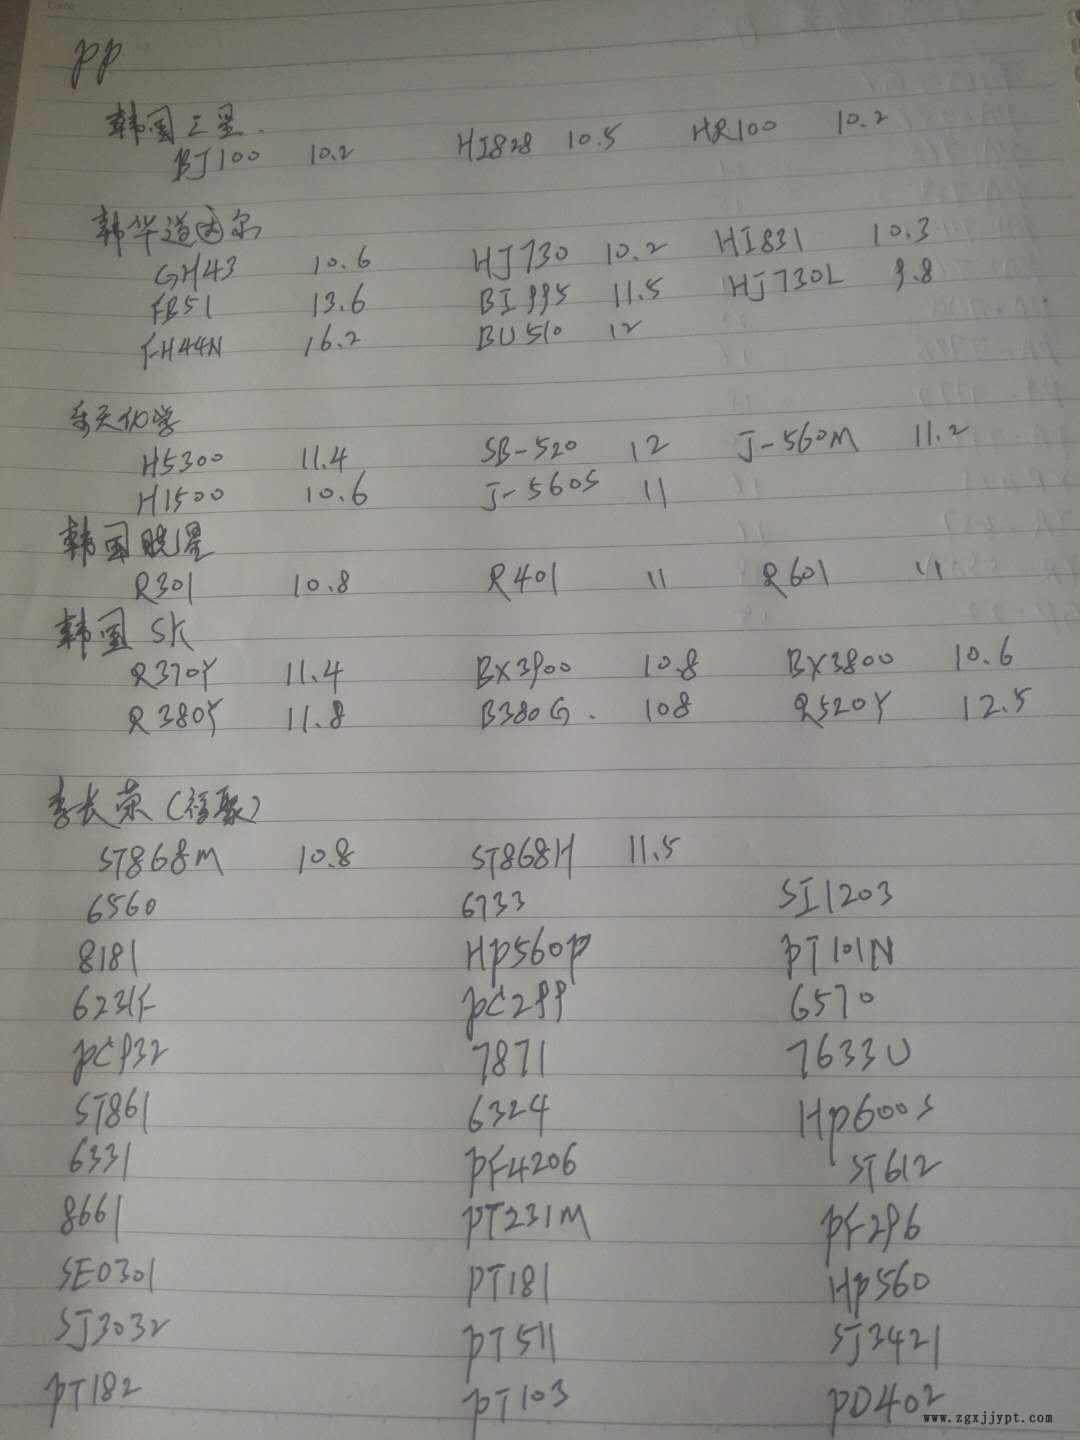 PP
韩国三星.
BJ100 10.2 HI828 10.5 HR100 10.2
韩华道达尔
GH43 10.6 HJ730 10.2 HI831 10.3
FB51 13.6 BI995 11.5 HJ730L 9.8
FH44N 16.2 BU510 12
乐天化学
H5300 11.4 SB-520 12 J-560M 11.2
H1500 10.6 J-560S 11
韩国晓星
R301 10.8 R401 11 R601 11
韩国SK
R370Y 11.4 BX3900 10.8 BX3800 10.6
R380Y 11.8 B380G. 108 R520Y 12.5
李长荣(福聚)
ST868M 10.8 ST868H 11.5
6560 6733 SI1203
8181 HP560P PT101N
6231F PC299 6570
PC932 7871 7633U
ST861 6324 HP600S
6331 PF4206 ST612
8661 PT231M PF296
SE0301 PT181 HP560
SJ3032 PT511 SJ3421
PT182 PT103 PD402
www.zgxjjypt.com